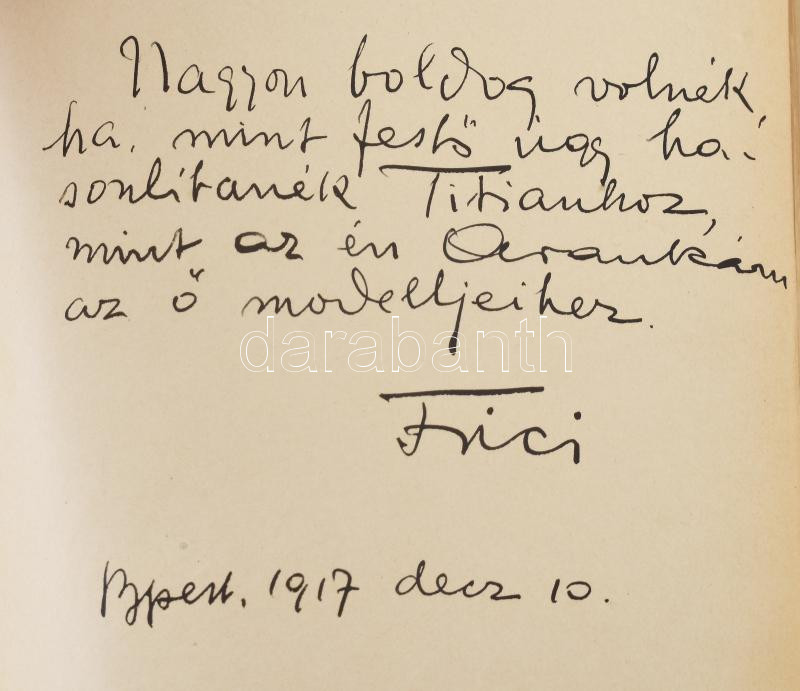 Nagyon boldog volnék,
ha, mint festő úgy ha-
sonlítanék Titianhoz,
mint az én Arankám
az ő modelljeihez.
darabanth
Frici
Bpest. 1917 decz 10.